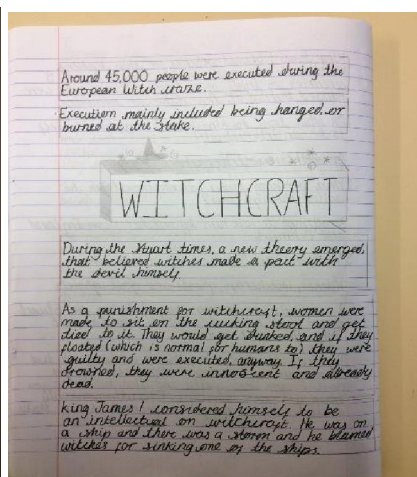 Around 45,000 people were executed during the
European Witch craze.
Execution mainly included being hanged or
burned at the stake.
WITCHCRAFT
During the Stuart times, a new theory emerged,
that believed witches made a pact with
the devil himself.
As a punishment for witchcraft, women were
made to sit on the cucking stool and get
tied to it. They would get dunked, and if they
floated (which is normal for humans to) they were
guilty and were executed anyway. If they
drowned, they were innoscent and allready
dead.
King James I considered himself to be
an intellectual on witchcraft. He was on
a ship and there was a storm and he blamed
witches for sinking one of the ships.